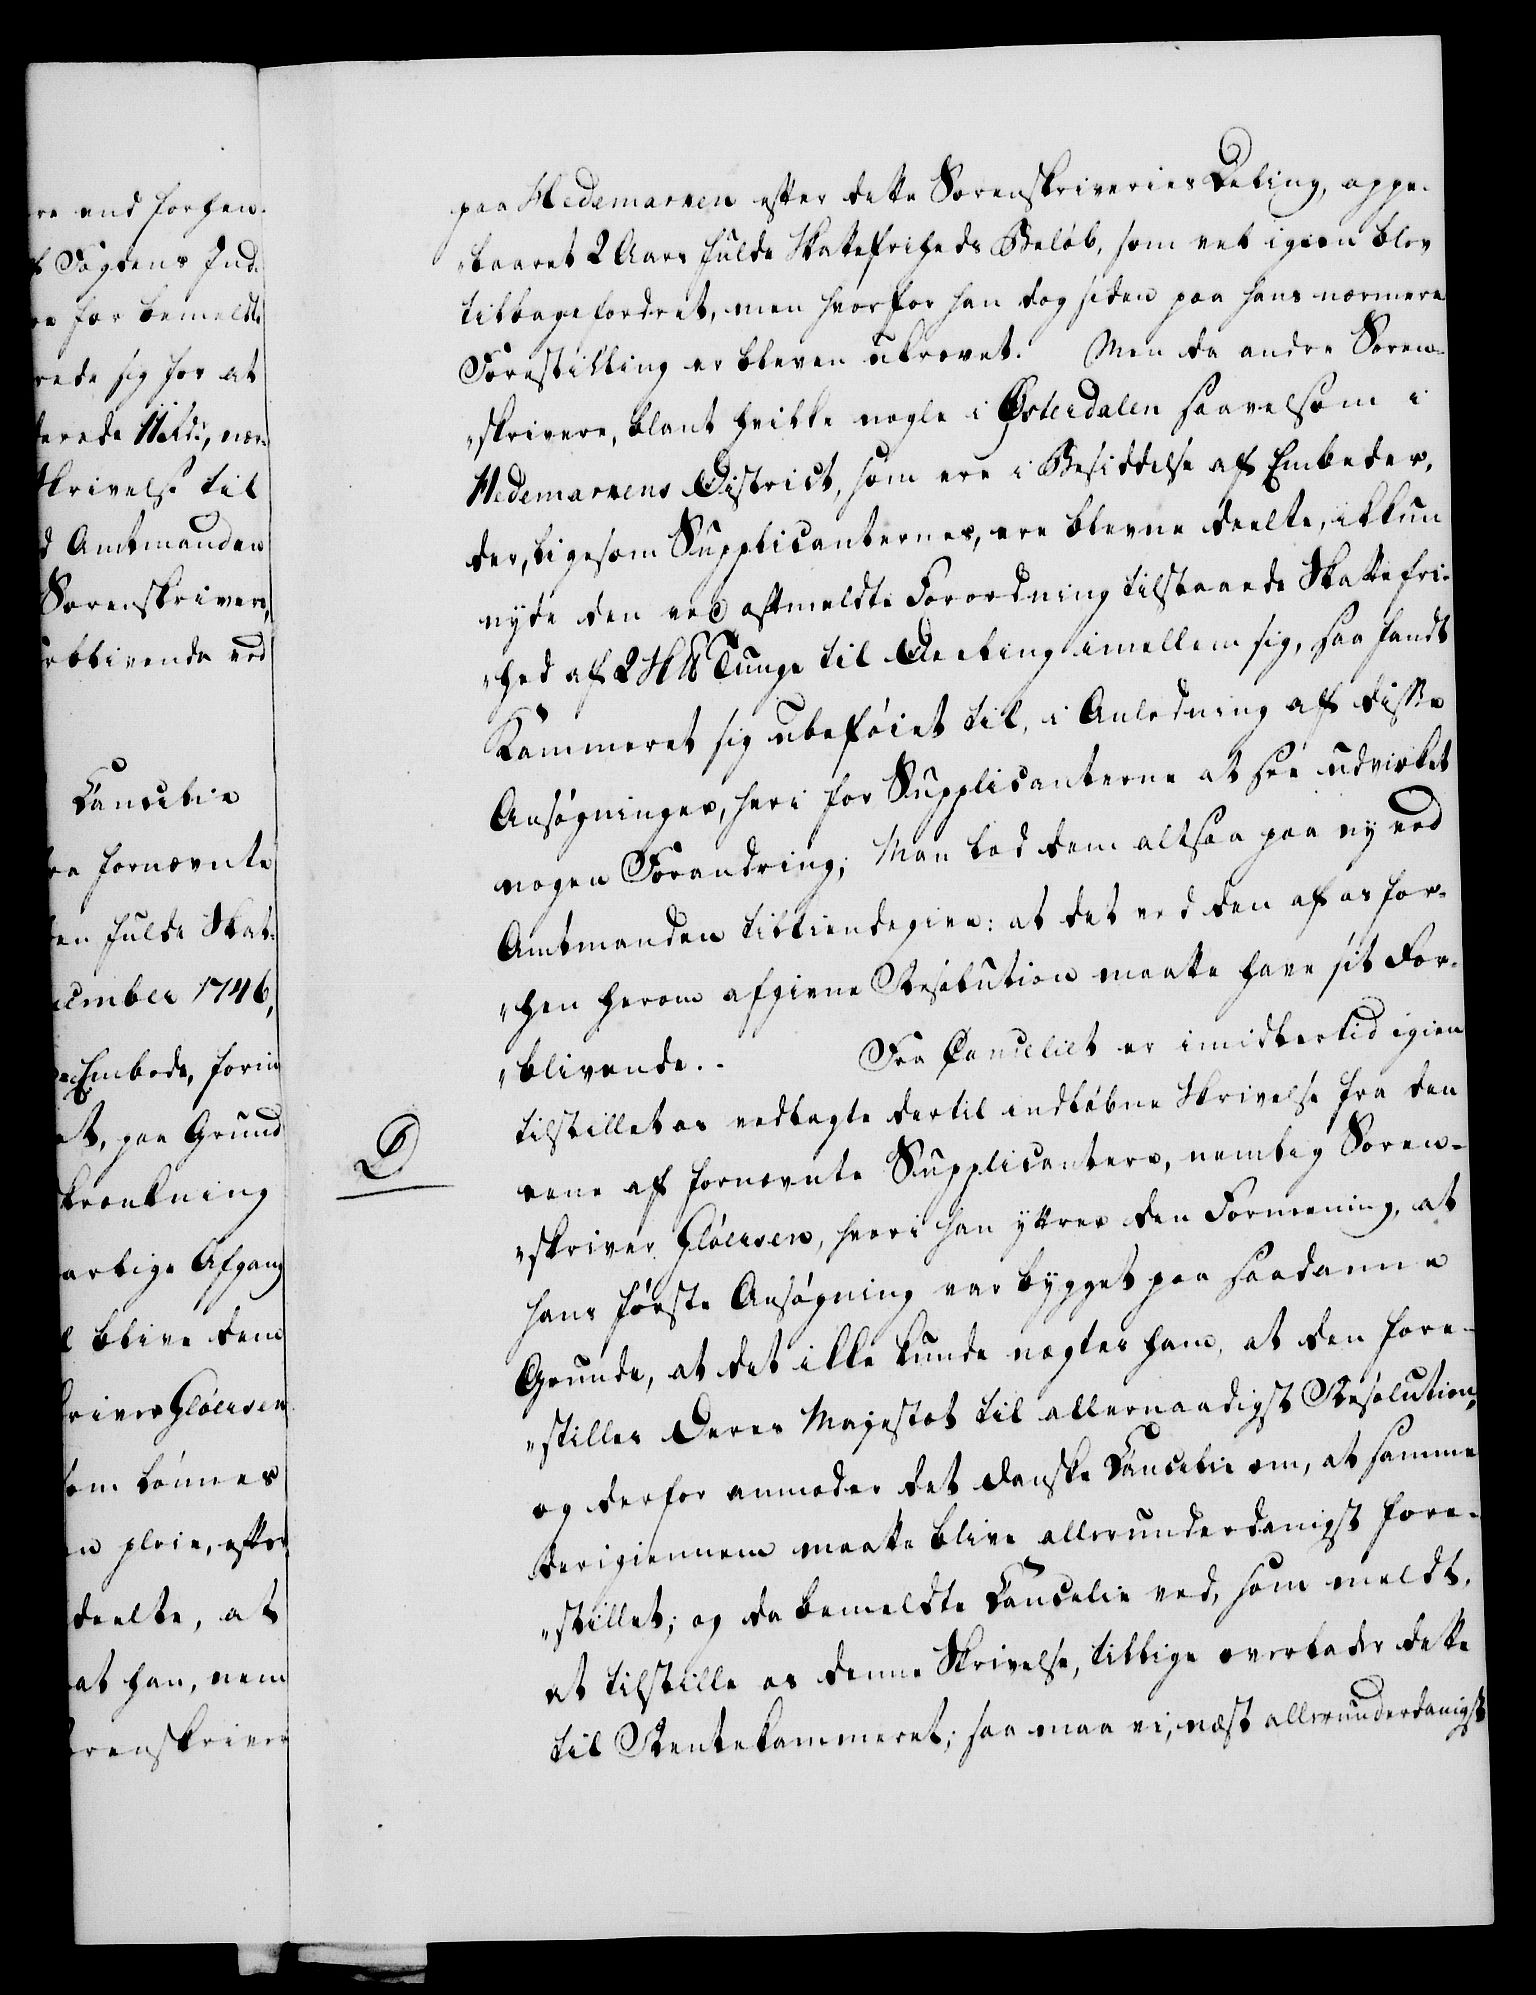 re end forhen-
Fogdens Ind-
for bemeldte
rede sig for at
terede Vild:, nær-
Skrivelse til
d Amtmanden
Sorenskrivere,
rblivende ved
Cancelie
fornævnte
en fulde Skat-
cember 1746,
Embede, forin
et, paa Grund
krænkning
artige Afgang
l blive dem
kriver Gløersen
om lønnes
n pleie, efter
deelte, at
at han, nem
orenskriver
paa Hedemarken efter dette Sorenskriveries Deling, oppe-
baaret 2 Aars fulde Skattefriheds Beløb, som vel igien blev
tilbagefordret, men hvorfor han dog siden paa hans nærmere
Forestilling er bleven ukrævet. Men da andre Soren-
skrivere, blant hvilke nogle i Østerdalen saavelsom i
Hedemarkens District, som ere i Besiddelse af Embeder,
der, ligesom Supplicanternes, ere blevne deelte, ikkun
nyde den ved oftmeldte Forordning tilstaaede Skattefri-
hed af 2 H Tunge til Deeling imellem sig, saa fandt
Kammeret sig ubeføiet til, i Anledning af disse
Ansøgninger, heri for Supplicanterne at see udvirket
nogen Forandring; Man lod dem altsaa paa ny ved
Amtmanden tilkiendegive: at det ved den af os for-
hen herom afgivne Resolution maatte have sit For-
blivende. - Fra Canceliet er imidlertid igien
D
tilstillet os vedlagte dertil indløbne Skrivelse fra den
eene af fornævnte Supplicantere, nemlig Soren-
skriver Gløersen, hvori han yttrer den Formening, at
hans første Ansøgning var bygget paa saadanne
Grunde, at det ikke kunde nægtes ham, at den fore-
stilles Deres Majestæt til allernaadigst Resolution,
og derfor anmoder det danske Cancelie om, at samme
derigiennem maatte blive allerunderdanigst fore-
stillet; og da bemeldte Cancelie ved, som meldt,
at tilstille os denne Skrivelse, tillige overlader dette
til Rentekammeret; saa maa vi, næst allerunderdanigst